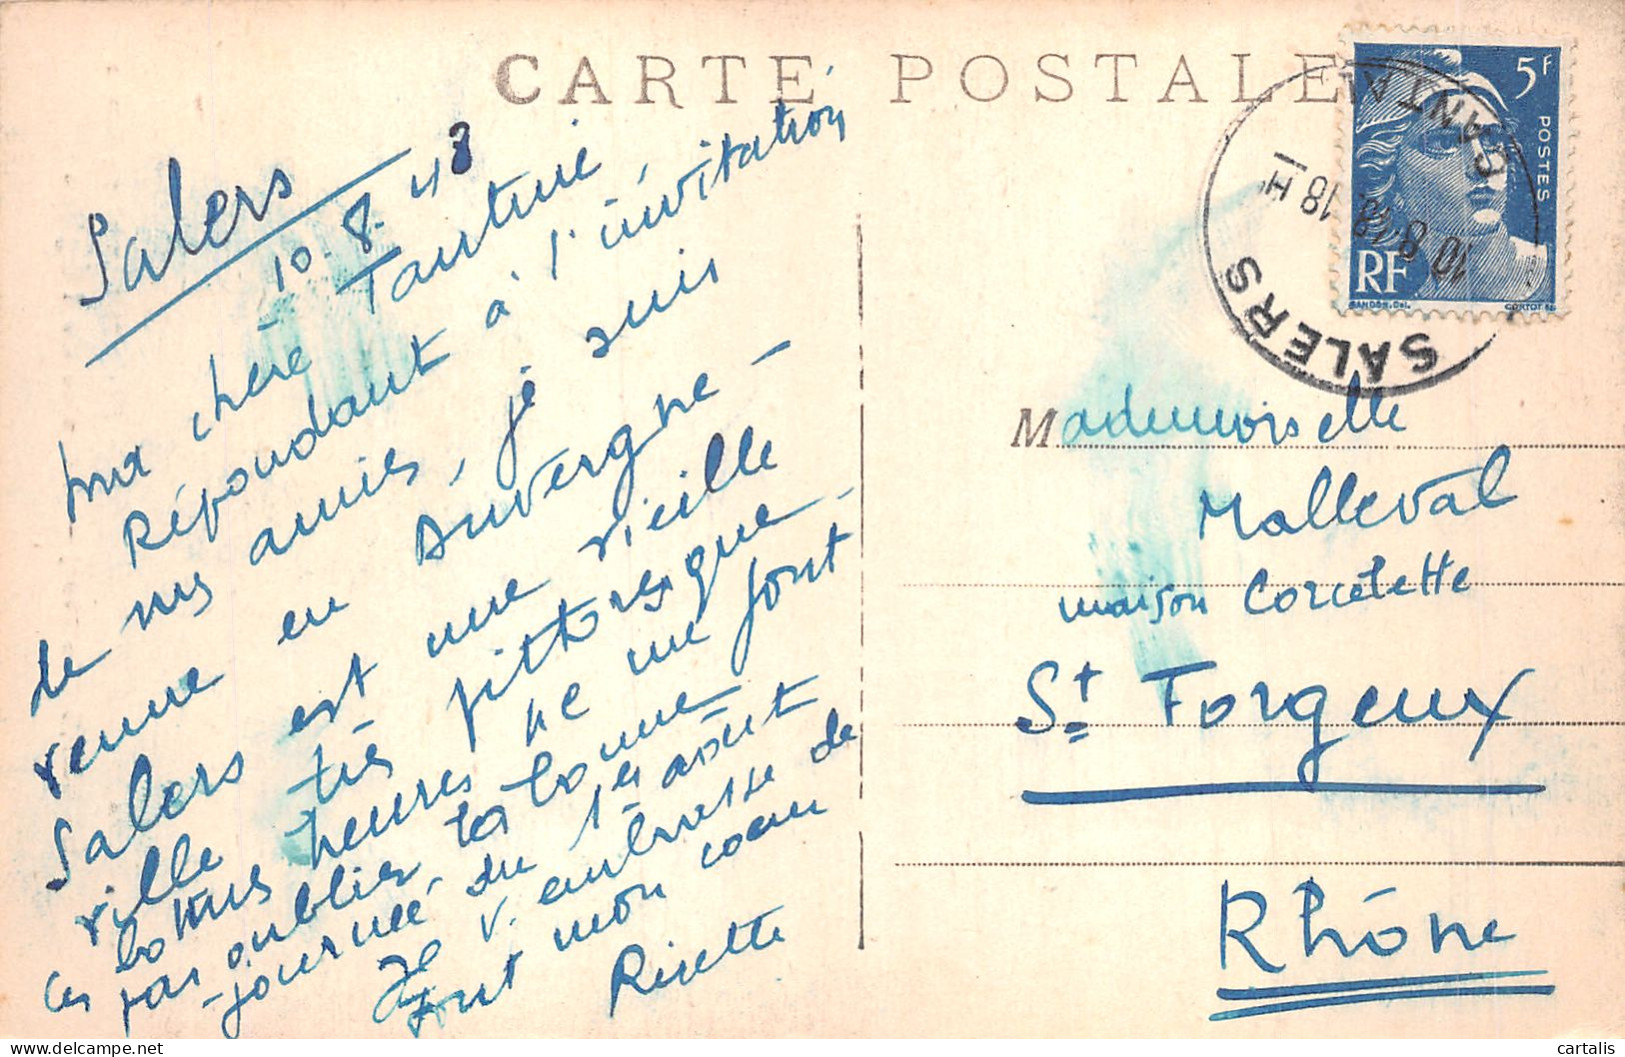 CARTE POSTALE
Salers
10.8.48
ma chère Tantine,
Répondant à l'invitation
de mes amies, je suis
venue en Auvergne -
Salers est une vieille
ville très pittoresque -
ces bonnes heures ne me font
pas oublier la bonne
journée du 1er août
Je v. embrasse de
tout mon cœur
Risette
5f
POSTES
RF
GANDON.Del.
CORTOT sc
SALERS
CANTAL
18 H
10 8 48
Mademoiselle
Malleval
maison Corcelette
St Forgeux
Rhône
cartalis